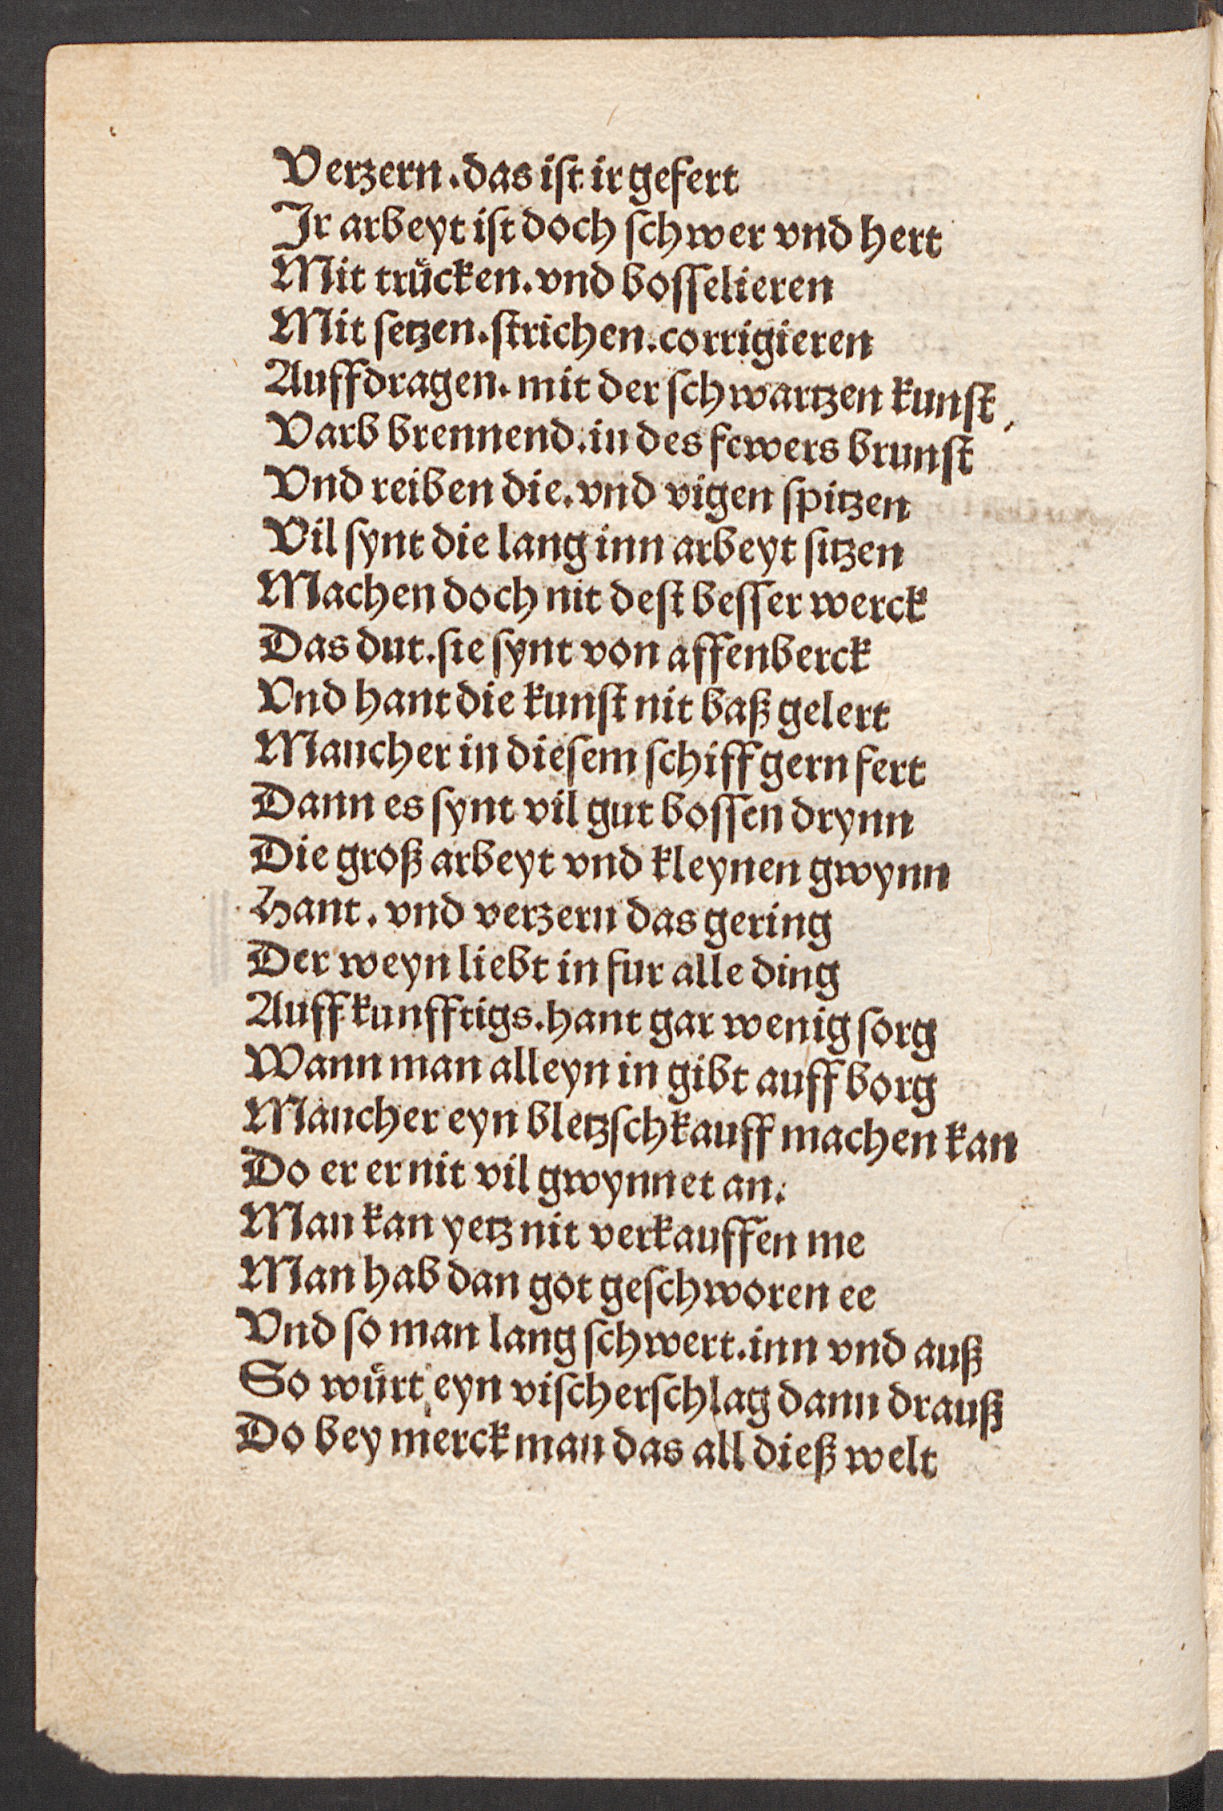 Verzern.das ist ir gefert
Jr arbeyt ist doch schwer vnd hert
Mit trücken.vnd bosselieren
Mit setzen.strichen.corrigieren
Auffdragen.mit der schwartzen kunst
Varb brennend.in des fewers brunst
Vnd reiben die.vnd vigen spitzen
Vil synt die lang inn arbeyt sitzen
Machen doch nit dest besser werck
Das dut.sie synt von affenberck
Vnd hant die kunst nit baß gelert
Mancher in diesem schiff gern fert
Dann es synt vil gut bossen drynn
Die groß arbeyt vnd kleynen gwynn
Hant.vnd verzern das gering
Der weyn liebt in fur alle ding
Auff kunfftigs.hant gar wenig sorg
Wann man alleyn in gibt auff borg
Mancher eyn bletzschkauff machen kan
Do er er nit vil gwynnet an.
Man kan yetz nit verkauffen me
Man hab dan got geschworen ee
Vnd so man lang schwert.inn vnd auß
So würt eyn vischerschlag dann drauß
Do bey merck man das all dieß welt